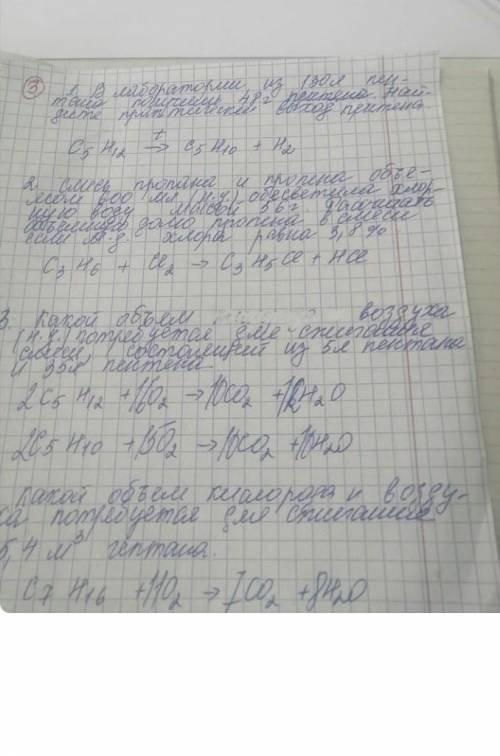 3
1. В лаборатории из 130 л пен-
тана получили 48 г пентена. Най-
дите практический выход пентена
C5 H12 t→ C5H10 + H2
2. Смесь пропана и пропена объё-
мом 800 мл (н.у) обесцветила хлор-
ную воду массой 36 г
объёмную долю пропена в смеси
если м.д. хлора равна 3,8 %
C3 H6 + Cl2 → C3 H5 Cl + HCl
3. Какой объем воздуха
(н.у.) потребуется для сжигания
смеси, состоящей из 5л пентана
и 35л пентена.
2C5 H12 + 16O2 → 10CO2 + 12H2O
2C5 H10 + 15O2 → 10CO2 + 10H2O
Какой объем кислорода и возду-
ха потребуется для сжигания
5,4 м³ гептана.
C7 H16 + 11O2 → 7CO2 + 8H2O